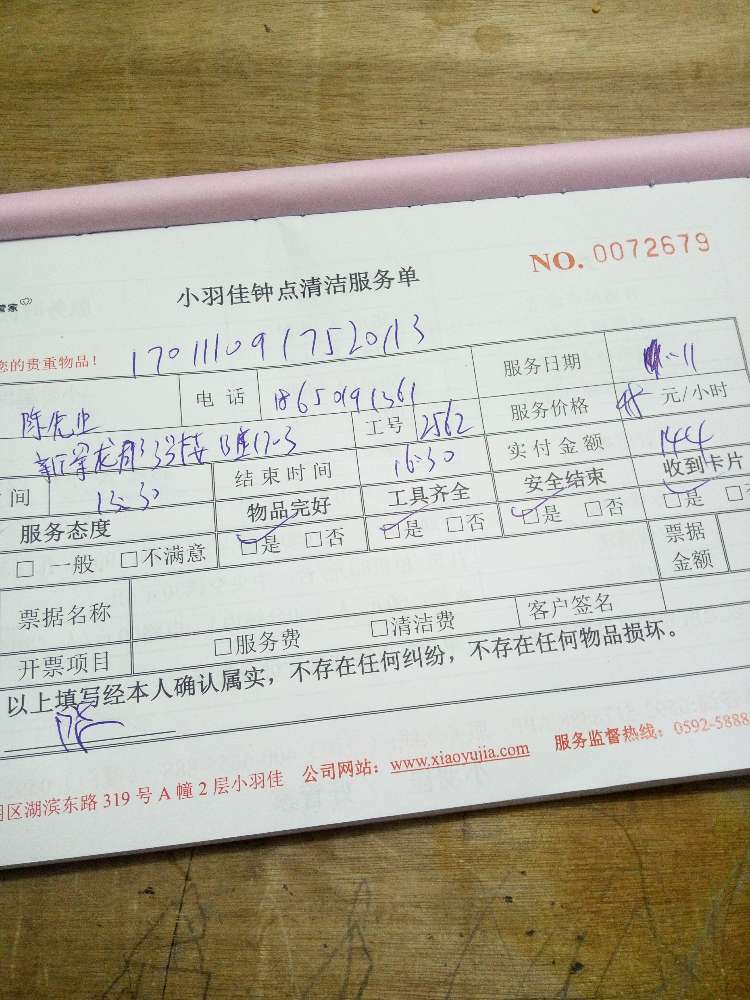 NO. 0072679
管家
小羽佳钟点清洁服务单
您的贵重物品！
1701110917520113
电 话 18650191361 服务日期 -11
工号 2562 服务价格 48 元/小时
间 13:30 结束时间 16:30 实付金额 144
服务态度 物品完好 工具齐全 安全结束 收到卡片
□ 一般 □不满意 □是 □否 □是 □否 □是 □否 □是 □
票据名称 票据金额
开票项目 □服务费 □清洁费 客户签名
以上填写经本人确认属实，不存在任何纠纷，不存在任何物品损坏。
区湖滨东路 319 号 A 幢 2 层小羽佳 公司网站：www.xiaoyujia.com 服务监督热线：0592-5888